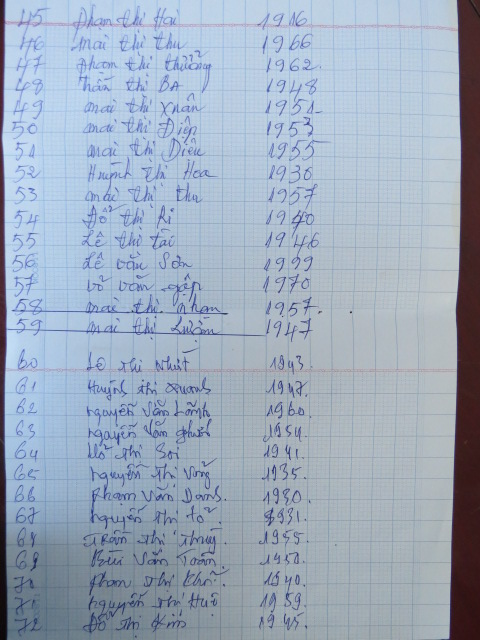 45 Phạm Thị Hai 1916
46 Mai Thị Thu 1966
47 Phạm Thị Thưởng 1962
48 Trần Thị Ba 1948
49 Mai Thị Xuân 1951
50 Mai Thị Điệp 1953
51 Mai Thị Diêu 1955
52 Huỳnh Thị Hoa 1930
53 Mai Thị Thu 1957
54 Đỗ Thị Ri 1940
55 Lê Thị Tài 1946
56 Lê Văn Sơn 1999
57 Võ Văn Gặp 1970
58 Mai Thị Nhạn 1957.
59 Mai Thị Lượm 1947
60 Lê Thị Nhất 1943.
61 Huỳnh Thị 1947.
62 Nguyễn Văn 1960.
63 Nguyễn Văn 1954.
64 Võ Thị 1941.
65 Nguyễn Thị 1935.
66 Phạm Văn Danh. 1980.
67 Nguyễn Thị 1931.
68 Trần Thị Thuỷ. 1955.
69 Bùi Văn Toán. 1950.
70 Phan Thị 1940.
71 Nguyễn Thị Huệ 1959.
72 Đỗ Thị Kim 1945.